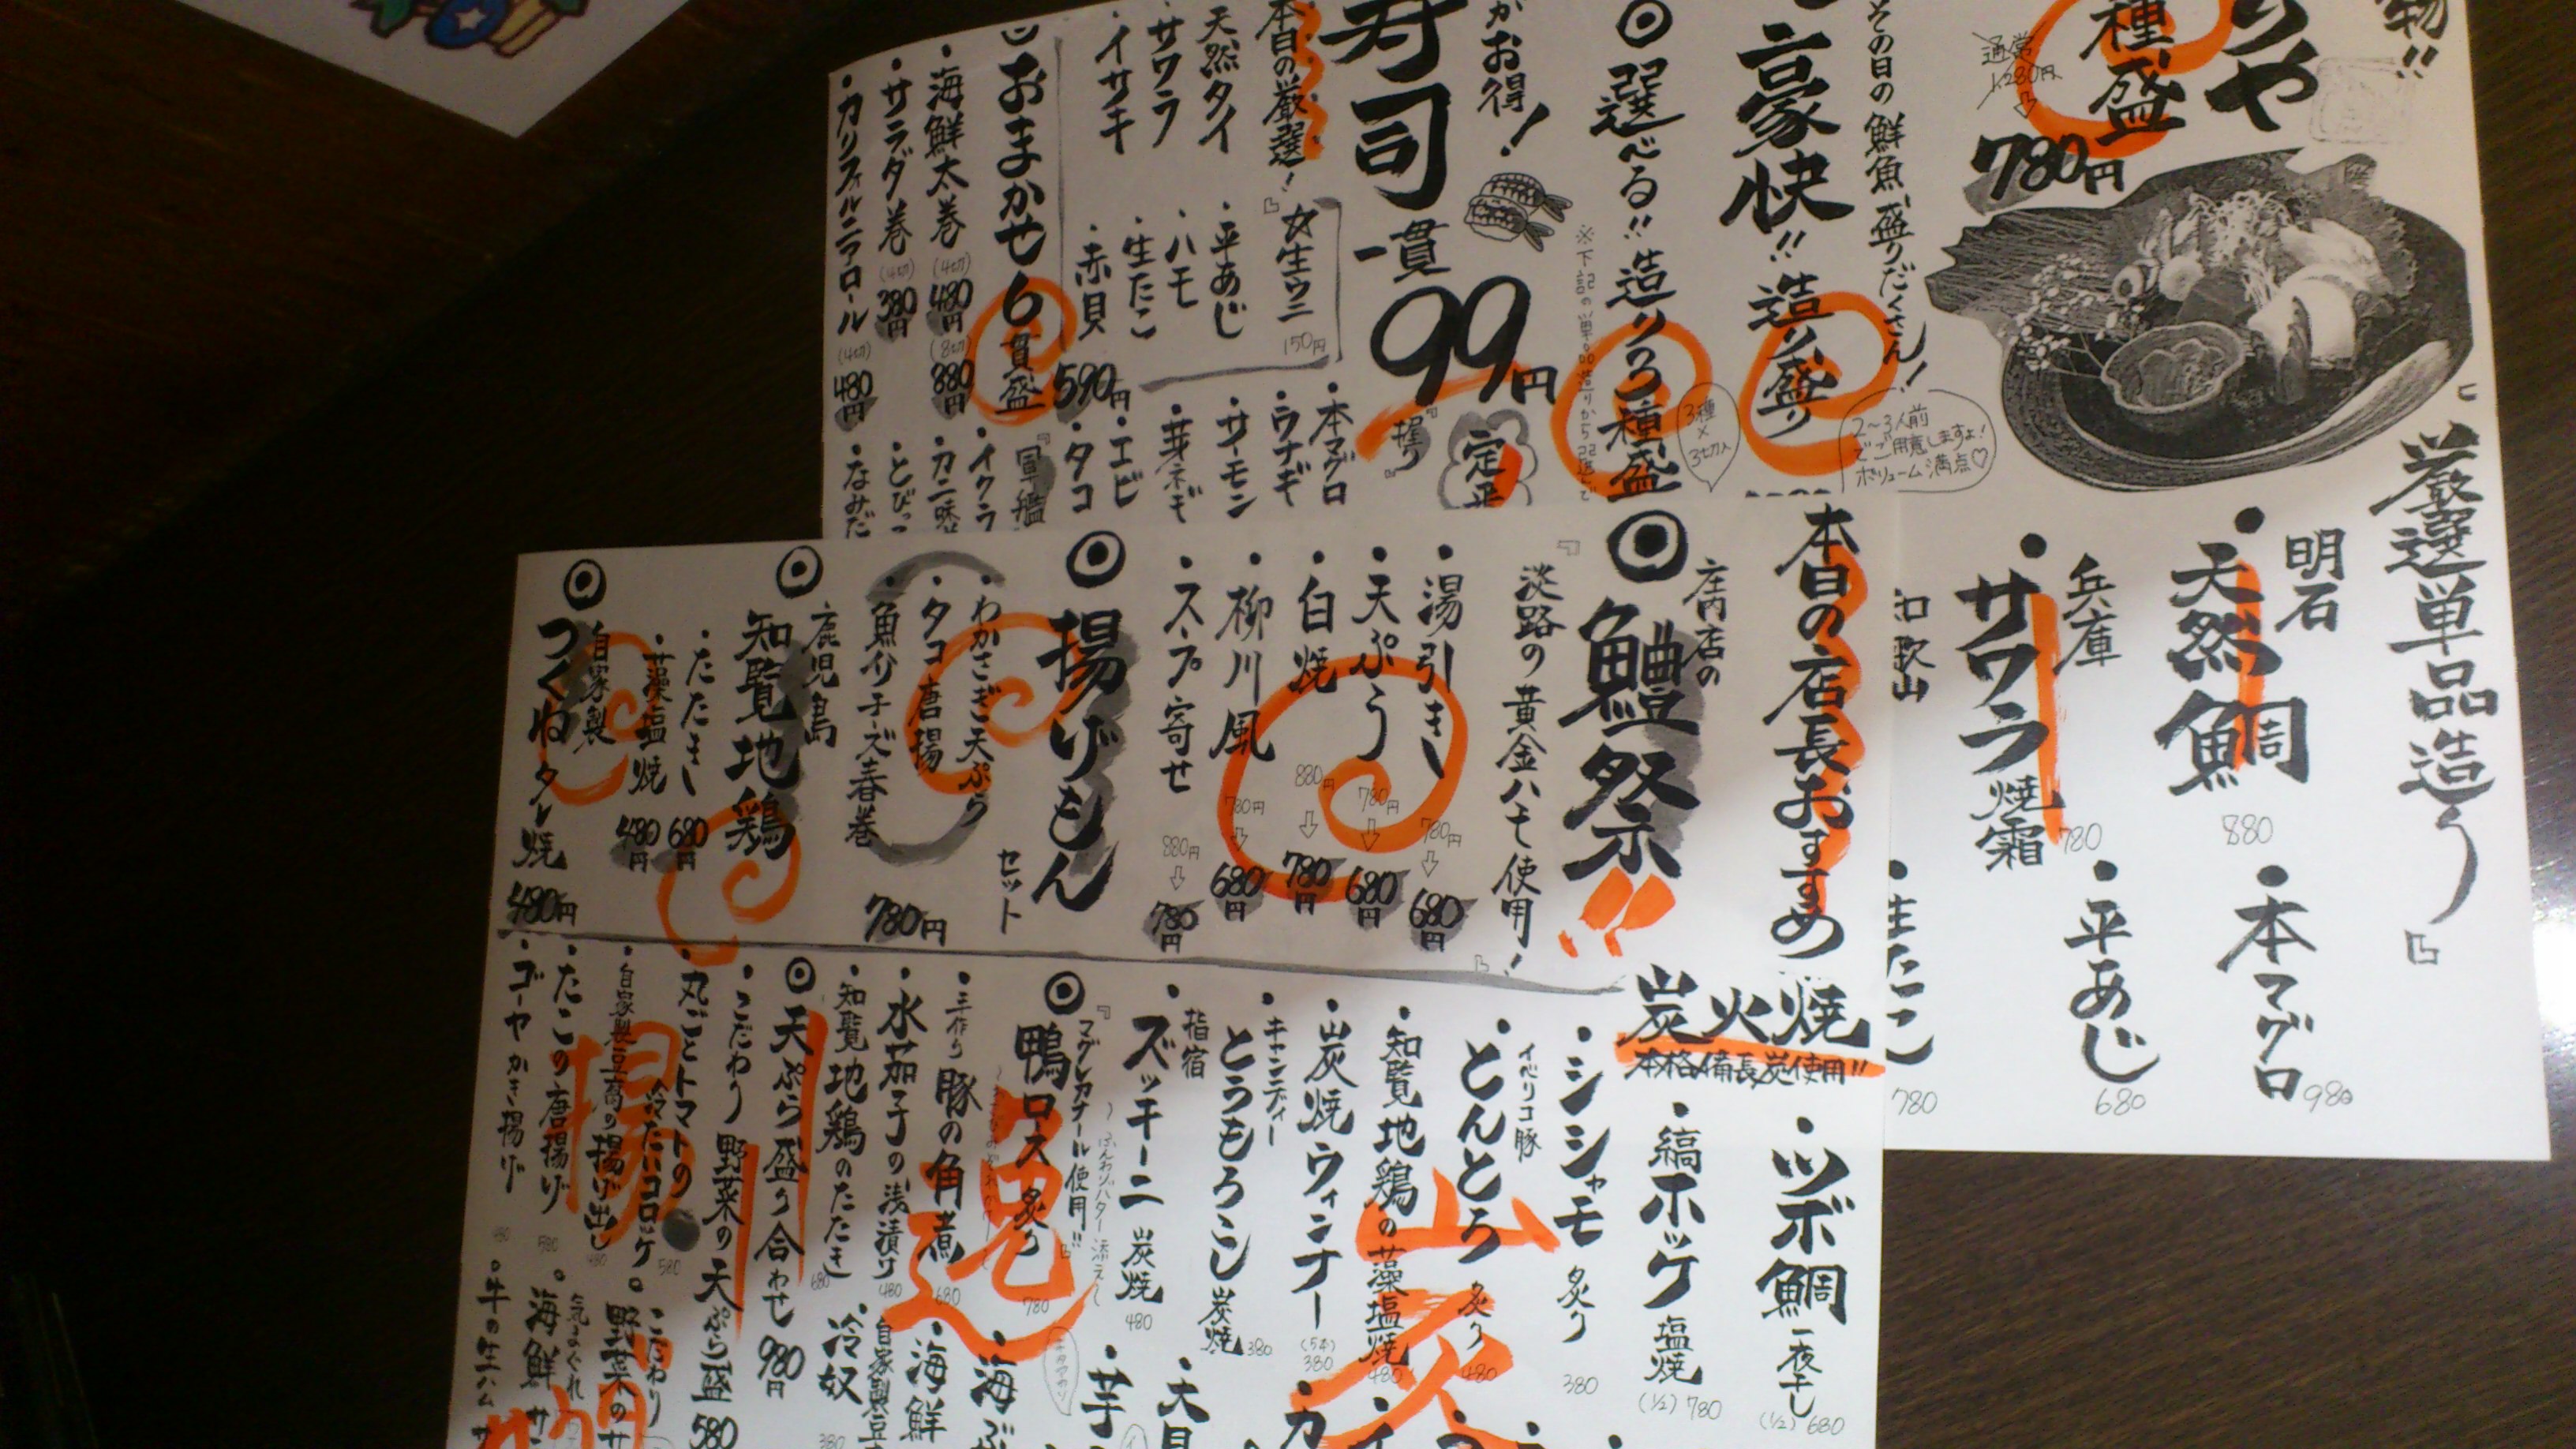 物!!
りや
種盛
通常
1,280円
780円
その日の鮮魚盛りだくさん!
・豪快!!造り盛り
2〜3人前
でご用意しますよ!
ボリューム満点♡
◎選べる!!造り3種盛
3種
×
3切入
かお得!
寿司一貫99円
『握り』
本日の厳選!
天然タイ
・サワラ
・イサキ
『生ウニ
150円
・平あじ
・ハモ
・生たこ
・赤貝
・本マグロ
・ウナギ
・サーモン
・芽ネギ
・エビ
・タコ
◎おまかせ6貫盛 590円
・海鮮太巻 (4切) 480円 (8切) 880円
・サラダ巻 (4切) 380円
・カリフォルニアロール (4切) 480円
『軍艦
・イクラ
・カニ味
・とびっ
・なみだ
『厳選単品造り』
明石
・天然鯛 880
兵庫
・サワラ焼霜 780
和歌山
・本マグロ 980
・平あじ 680
・生たこ 780
本日の店長おすすめ
庄内店の
◎鱧祭!!
『淡路の黄金ハモ使用!』
・湯引き 780円⇩680円
・天ぷら 780円⇩680円
・白焼 880円⇩780円
・柳川風 780円⇩680円
・スープ寄せ 880円⇩780円
◎揚げもん
セット
・わかさぎ天ぷら
・タコ唐揚
・魚介チーズ春巻
780円
鹿児島
◎知覧地鶏
・たたき 680円
・藻塩焼 480円
自家製
◎つくねタレ焼 480円
炭火焼
本格備長炭使用!!
・ツボ鯛 一夜干し (1/2) 680
・縞ホッケ 塩焼 (1/2) 780
・シシャモ 炙り 380
イベリコ豚
・とんとろ 炙り 480
・知覧地鶏の藻塩焼 480
・炭焼ウィンナー (5本) 380
キャンディー
・とうもろこし 炭焼 380
指宿
・ズッキーニ 炭焼 480
『マグレカナール使用!!』
◎鴨ロース炙り 780
・手作り豚の角煮 680
・水茄子の浅漬け 480
・知覧地鶏のたたき 680
◎天ぷら盛り合わせ 980円
・こだわり野菜の天ぷら盛 580
・丸ごとトマトの
冷たいコロッケ 580
・自家製豆腐の揚げ出し 480
・たこの唐揚げ 580
・ゴーヤかき揚げ
・海鮮
冷奴
自家製豆
こだわり
野菜のサ
気まぐれ
海鮮サ
・牛の生ハムサ